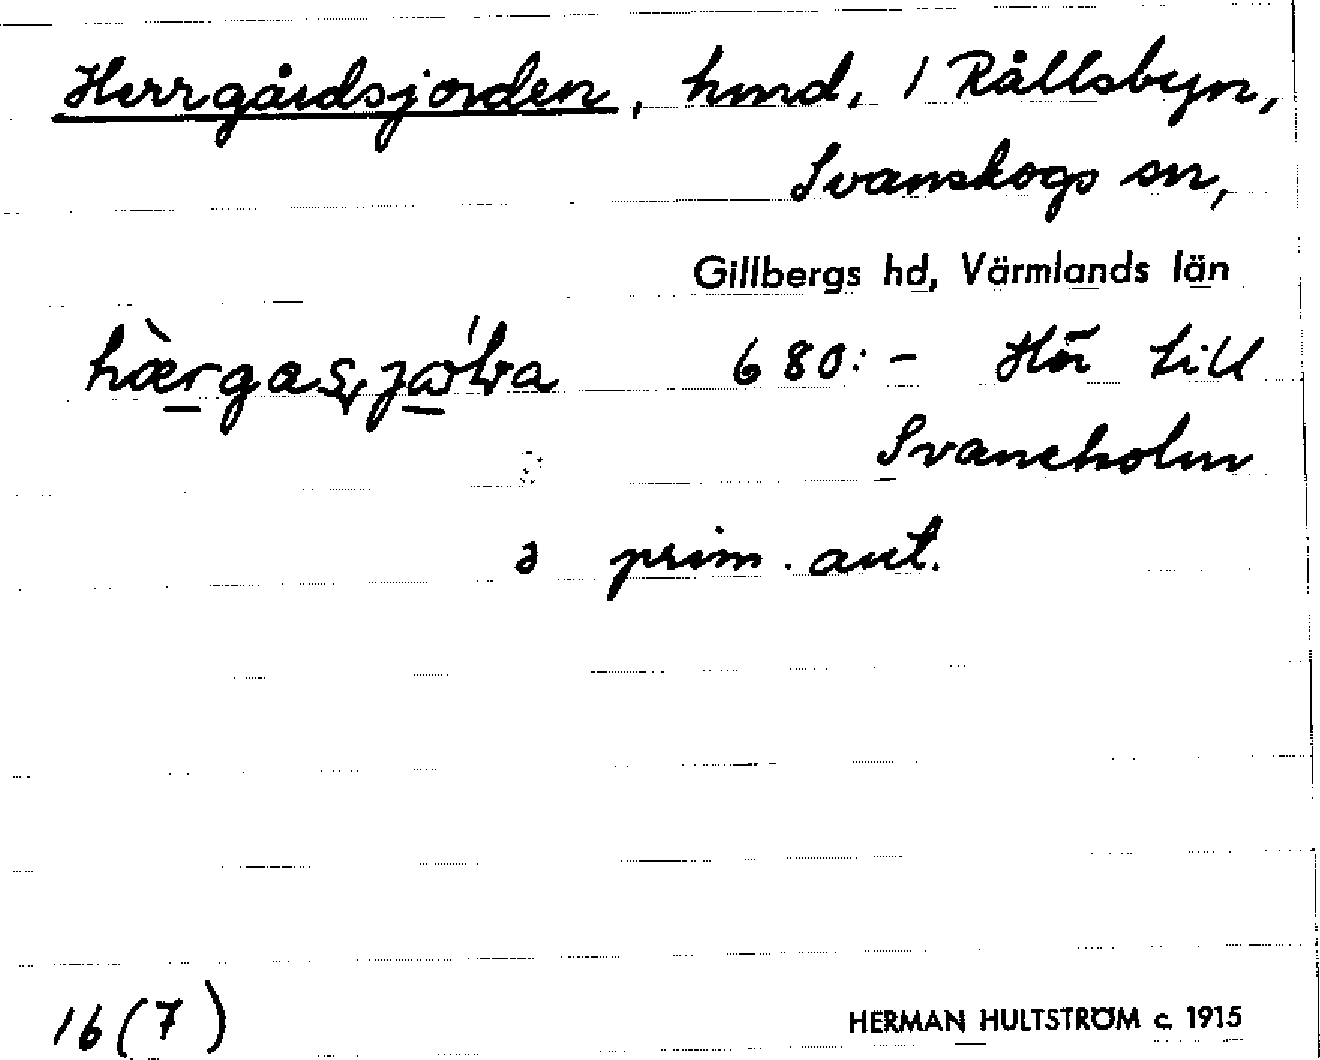 Herrgårdsjorden, hmd, 1 Rållsbyn,
Svanskogs sn,
Gillbergs hd, Värmlands län
680:- Hör till
Svaneholm
a prim. ant.
16(7) HERMAN HULTSTRÖM c. 1915